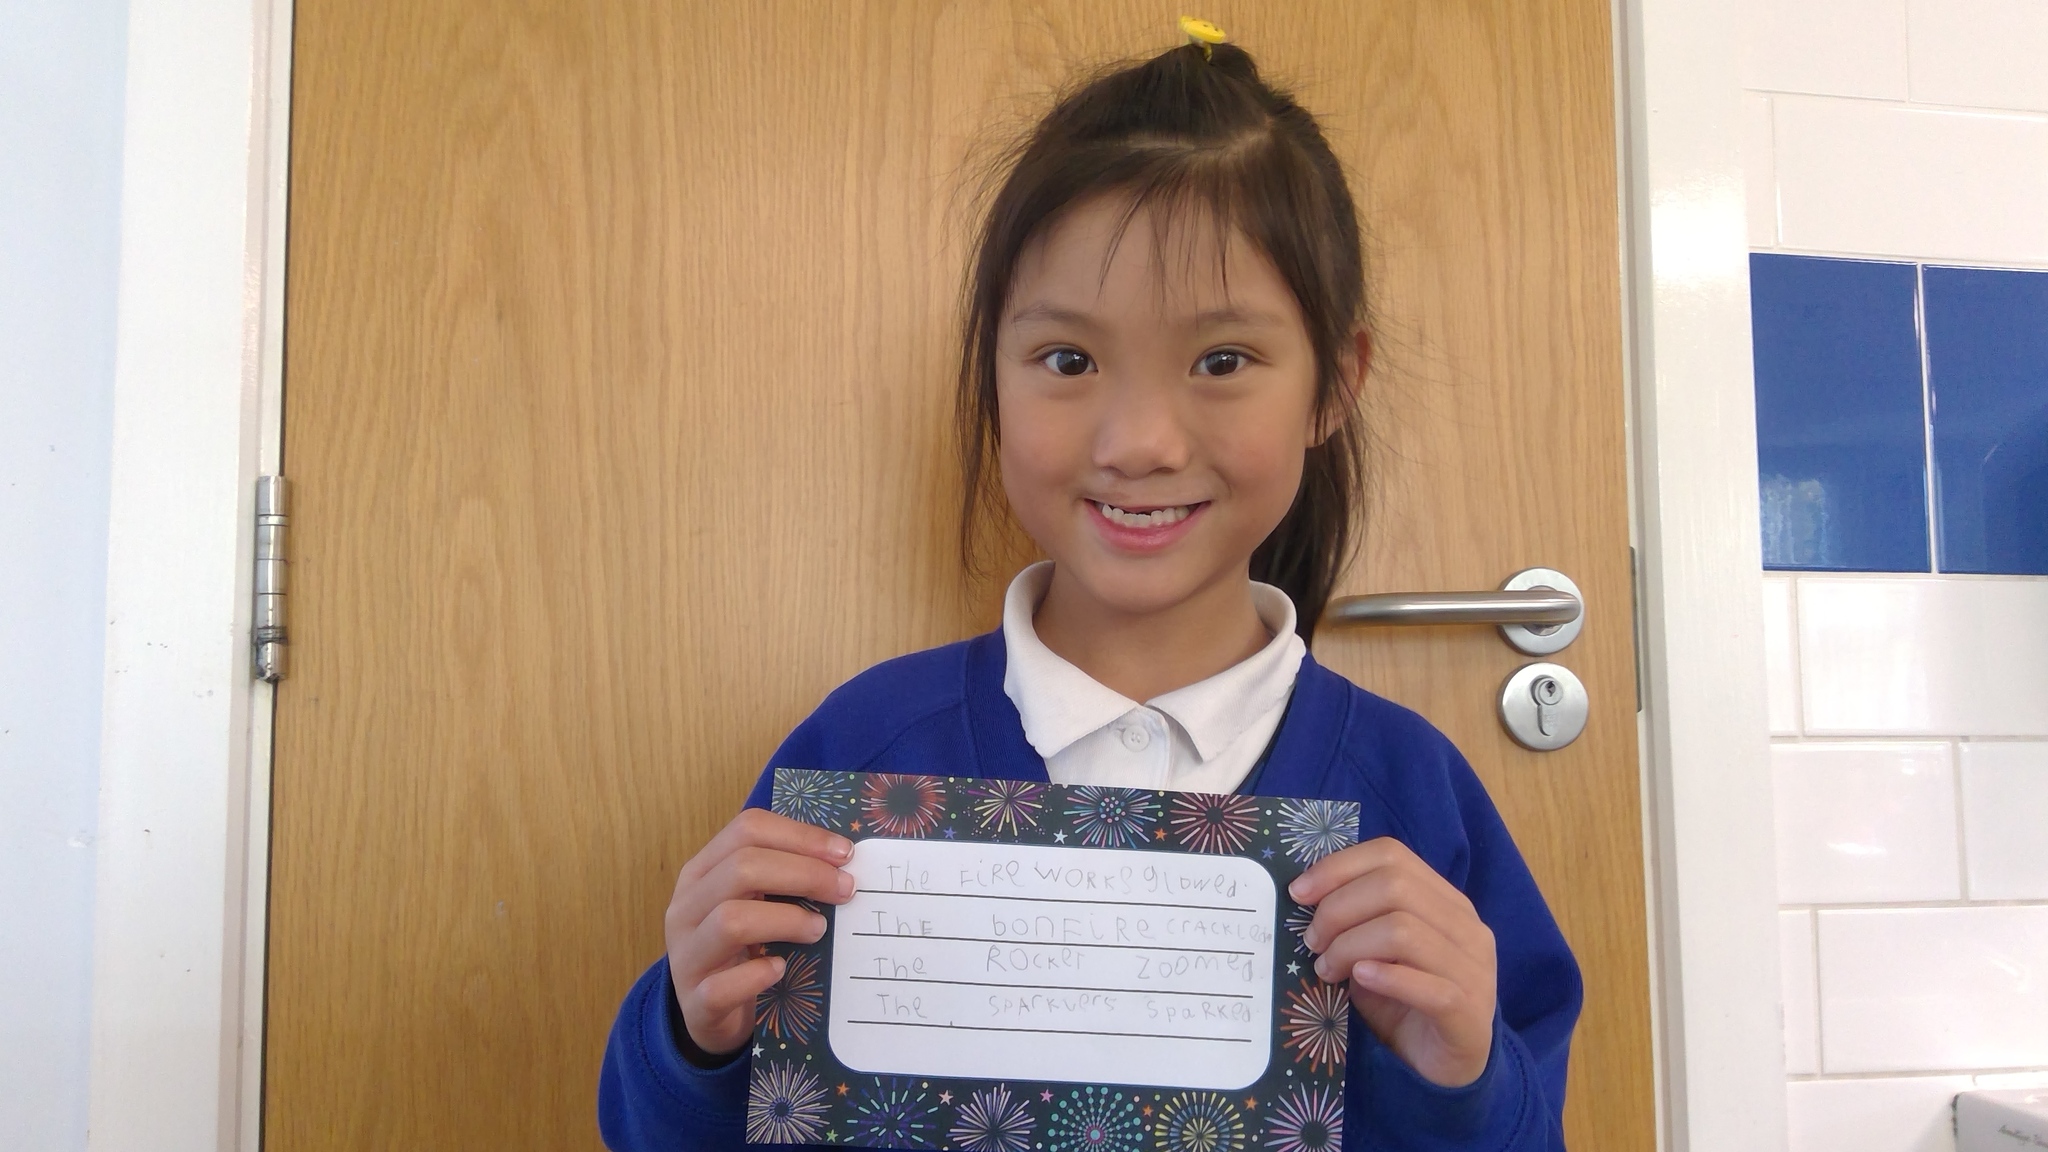 The FiRe WORKs glowed.
ThE bonFiRe cracKled.
The ROcKet zoomed.
The SpArkvers sparKed.